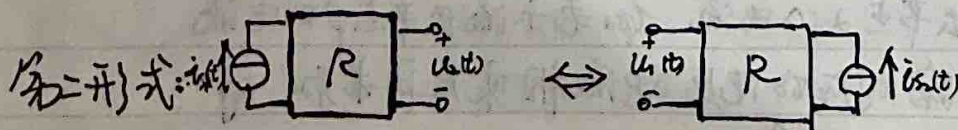 第二形式: is(t) R + u₂(t) - ⇔ + u₁(t) - R is₂(t)